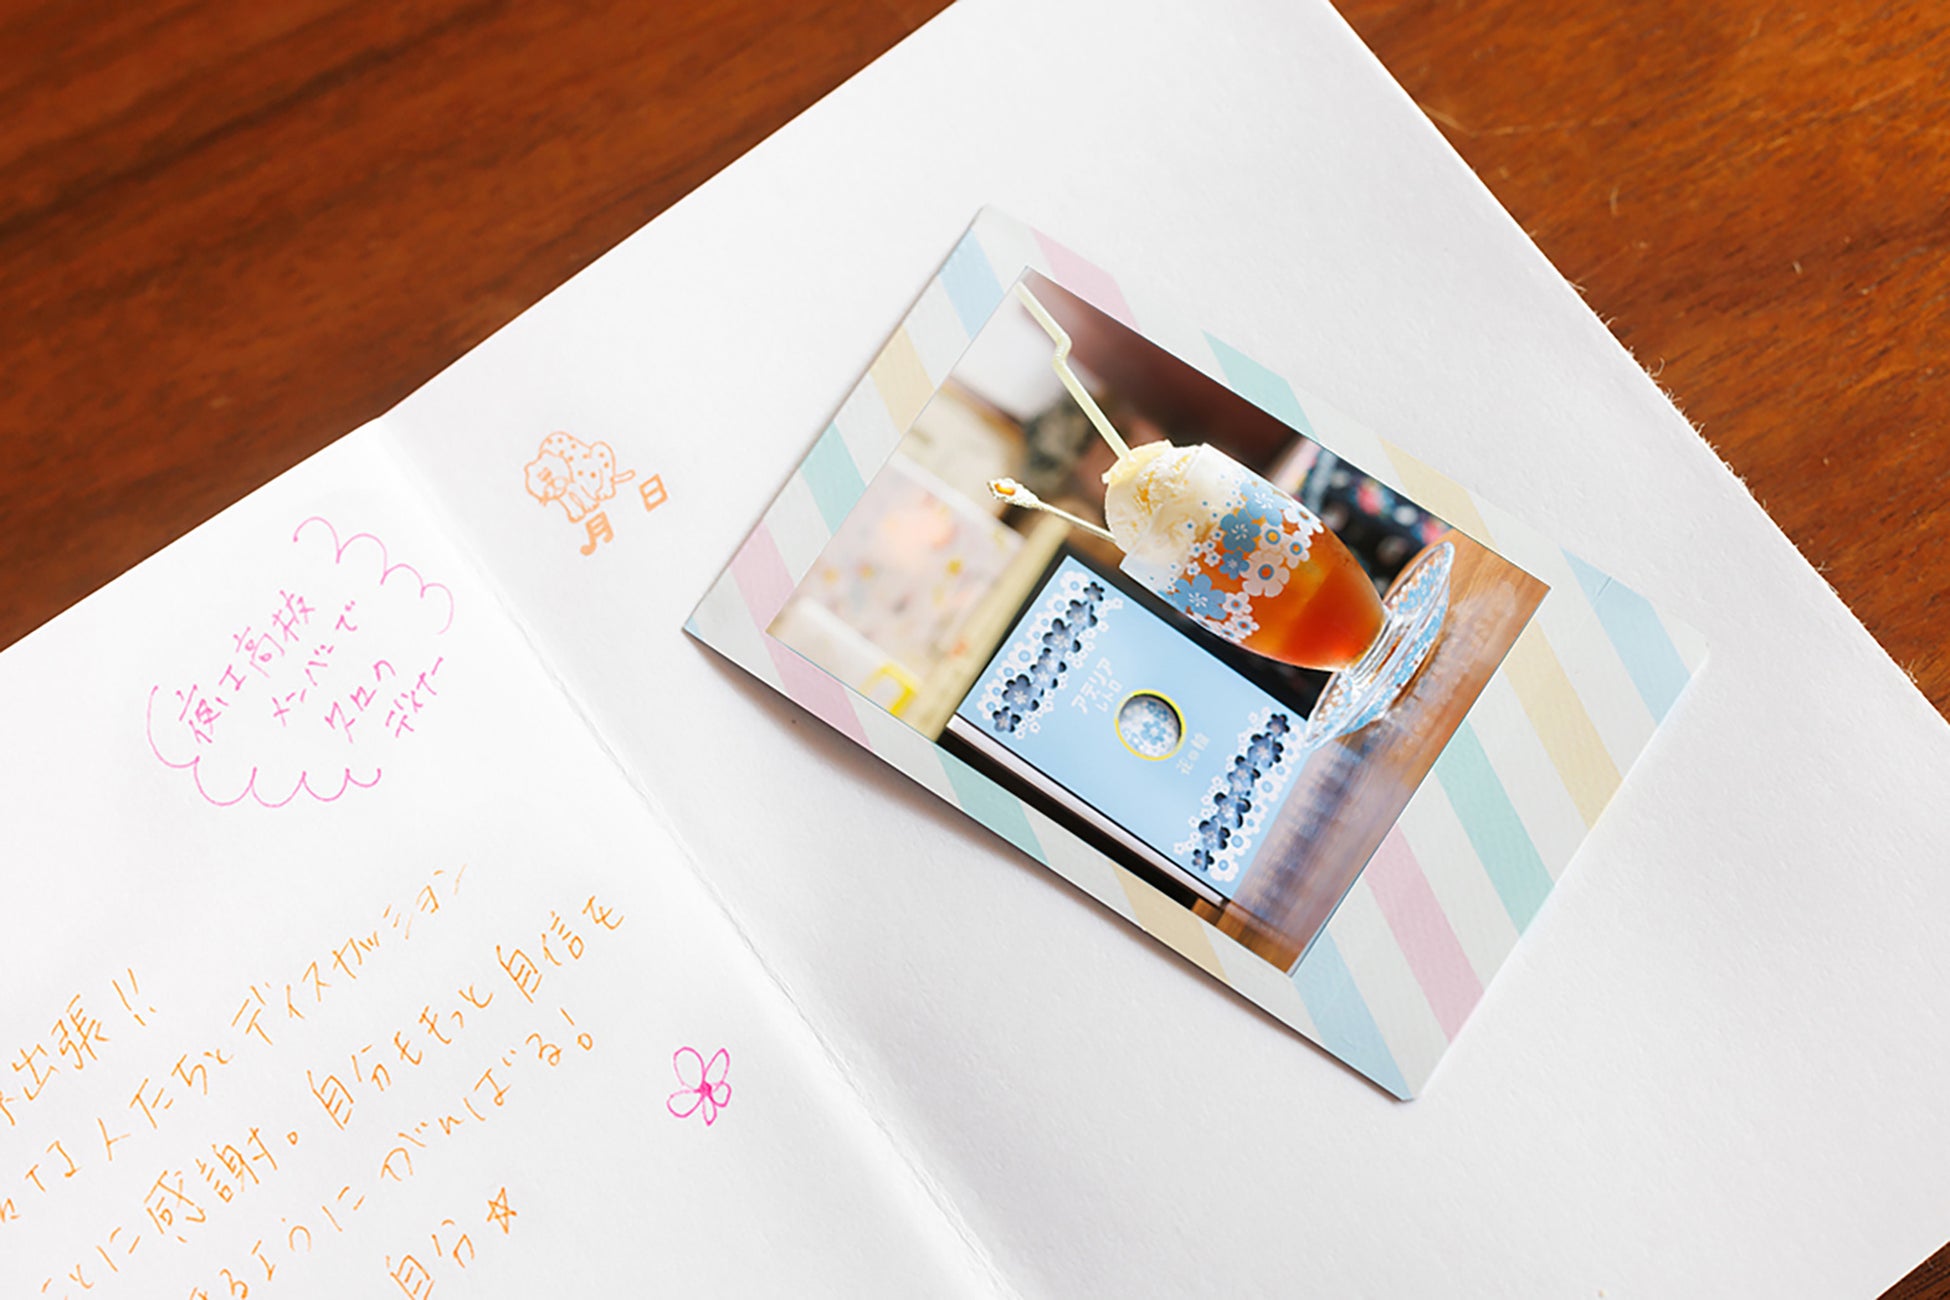 夜は高坂
メンバーで
クロック
ディナー
月 日
出張!!
人たちとディスカッション
ことに感謝。自分ももっと自信を
るようにがんばる!
自分☆
アデリア
レトロ
花の輪